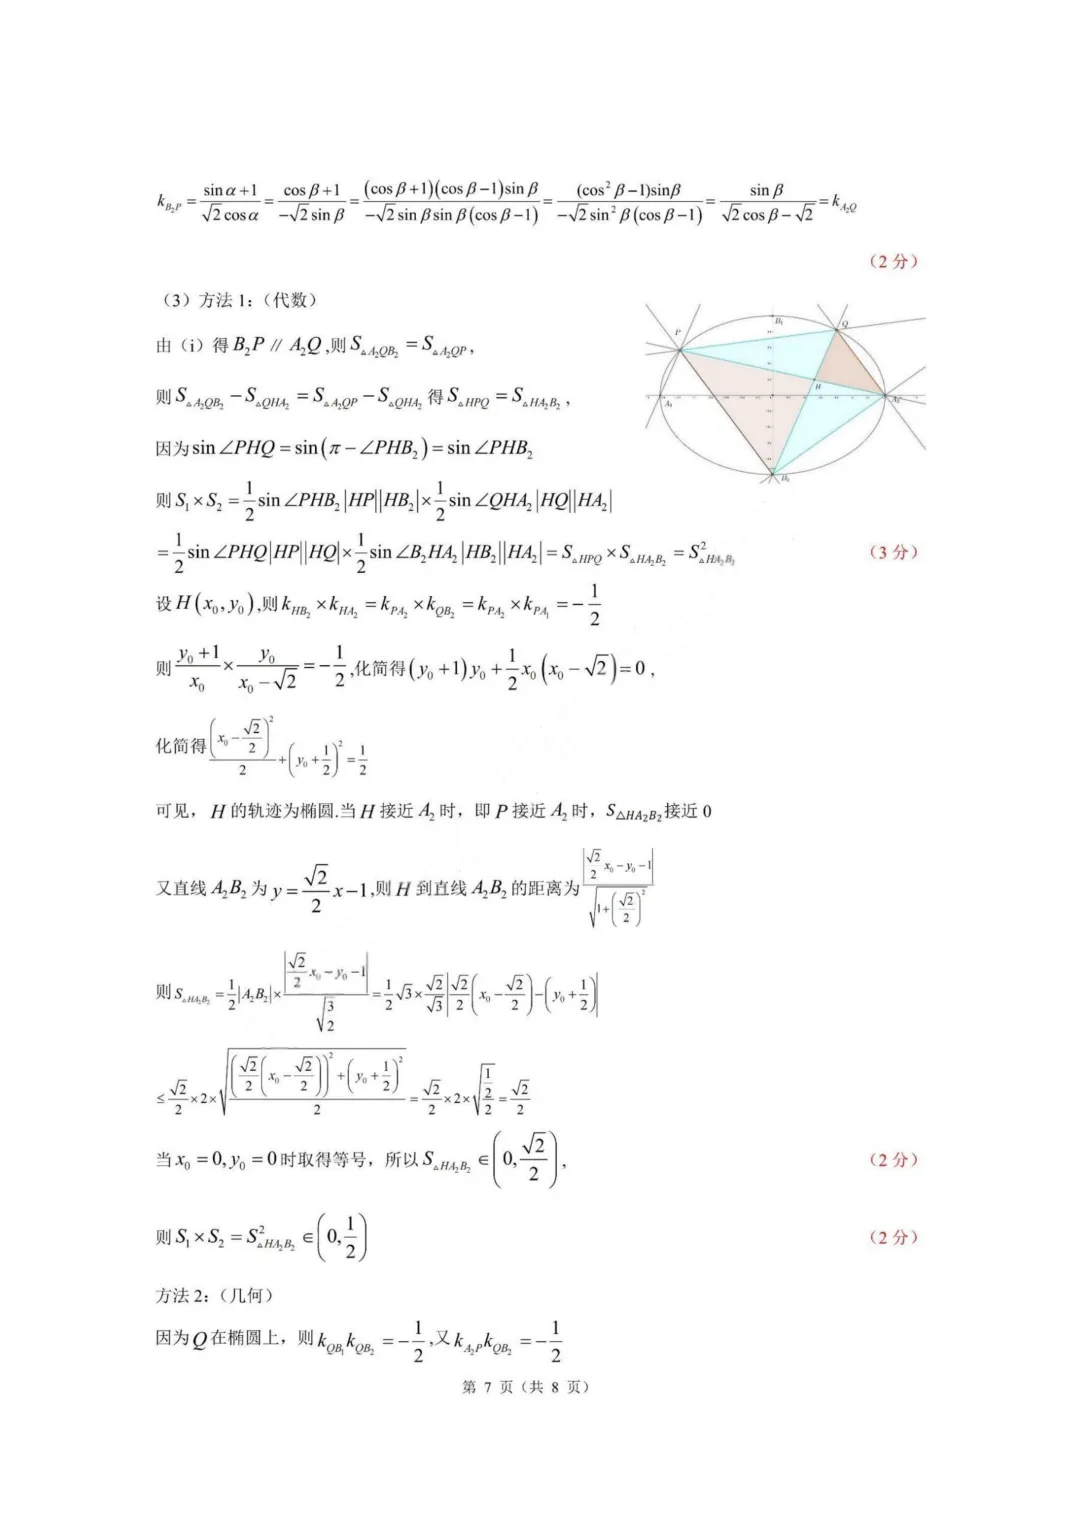 $k_{B_2P}=\frac{\sin\alpha+1}{\sqrt{2}\cos\alpha}=\frac{\cos\beta+1}{-\sqrt{2}\sin\beta}=\frac{(\cos\beta+1)(\cos\beta-1)\sin\beta}{-\sqrt{2}\sin\beta\sin\beta(\cos\beta-1)}=\frac{(\cos^2\beta-1)\sin\beta}{-\sqrt{2}\sin^2\beta(\cos\beta-1)}=\frac{\sin\beta}{\sqrt{2}\cos\beta-\sqrt{2}}=k_{A_2Q}$
（2 分）
（3）方法 1:（代数）
由（i）得 $B_2P\parallel A_2Q$,则 $S_{\triangle A_2QB_2}=S_{\triangle A_2QP}$,
则 $S_{\triangle A_2QB_2}-S_{\triangle QHA_2}=S_{\triangle A_2QP}-S_{\triangle QHA_2}$ 得 $S_{\triangle HPQ}=S_{\triangle HA_2B_2}$,
因为 $\sin\angle PHQ=\sin(\pi-\angle PHB_2)=\sin\angle PHB_2$
则 $S_1\times S_2=\frac{1}{2}\sin\angle PHB_2|HP||HB_2|\times\frac{1}{2}\sin\angle QHA_2|HQ||HA_2|$
$=\frac{1}{2}\sin\angle PHQ|HP||HQ|\times\frac{1}{2}\sin\angle B_2HA_2|HB_2||HA_2|=S_{\triangle HPQ}\times S_{\triangle HA_2B_2}=S^2_{\triangle HA_2B_2}$ （3 分）
设 $H(x_0,y_0)$,则 $k_{HB_2}\times k_{HA_2}=k_{PA_2}\times k_{QB_2}=k_{PA_2}\times k_{PA_1}=-\frac{1}{2}$
则 $\frac{y_0+1}{x_0}\times\frac{y_0}{x_0-\sqrt{2}}=-\frac{1}{2}$,化简得 $(y_0+1)y_0+\frac{1}{2}x_0(x_0-\sqrt{2})=0$,
化简得 $\frac{\left(x_0-\frac{\sqrt{2}}{2}\right)^2}{2}+\left(y_0+\frac{1}{2}\right)^2=\frac{1}{2}$
可见，H 的轨迹为椭圆.当 H 接近 $A_2$ 时，即 P 接近 $A_2$ 时，$S_{\triangle HA_2B_2}$接近 0
又直线 $A_2B_2$ 为 $y=\frac{\sqrt{2}}{2}x-1$,则 H 到直线 $A_2B_2$ 的距离为 $\frac{\left|\frac{\sqrt{2}}{2}x_0-y_0-1\right|}{\sqrt{1+\left(\frac{\sqrt{2}}{2}\right)^2}}$
则 $S_{\triangle HA_2B_2}=\frac{1}{2}|A_2B_2|\times\frac{\left|\frac{\sqrt{2}}{2}x_0-y_0-1\right|}{\sqrt{\frac{3}{2}}}=\frac{1}{2}\sqrt{3}\times\frac{\sqrt{2}}{\sqrt{3}}\left|\frac{\sqrt{2}}{2}\left(x_0-\frac{\sqrt{2}}{2}\right)-\left(y_0+\frac{1}{2}\right)\right|$
$\leq\frac{\sqrt{2}}{2}\times2\times\sqrt{\frac{\left(\frac{\sqrt{2}}{2}\left(x_0-\frac{\sqrt{2}}{2}\right)\right)^2+\left(y_0+\frac{1}{2}\right)^2}{2}}=\frac{\sqrt{2}}{2}\times2\times\sqrt{\frac{\frac{1}{2}}{2}}=\frac{\sqrt{2}}{2}$
当 $x_0=0,y_0=0$ 时取得等号，所以 $S_{\triangle HA_2B_2}\in\left(0,\frac{\sqrt{2}}{2}\right)$, （2 分）
则 $S_1\times S_2=S^2_{\triangle HA_2B_2}\in\left(0,\frac{1}{2}\right)$ （2 分）
方法 2:（几何）
因为 Q 在椭圆上，则 $k_{QB_1}k_{QB_2}=-\frac{1}{2}$,又 $k_{A_2P}k_{QB_2}=-\frac{1}{2}$
第 7 页（共 8 页）
P
Q
H
$A_1$
$A_2$
$B_1$
$B_2$